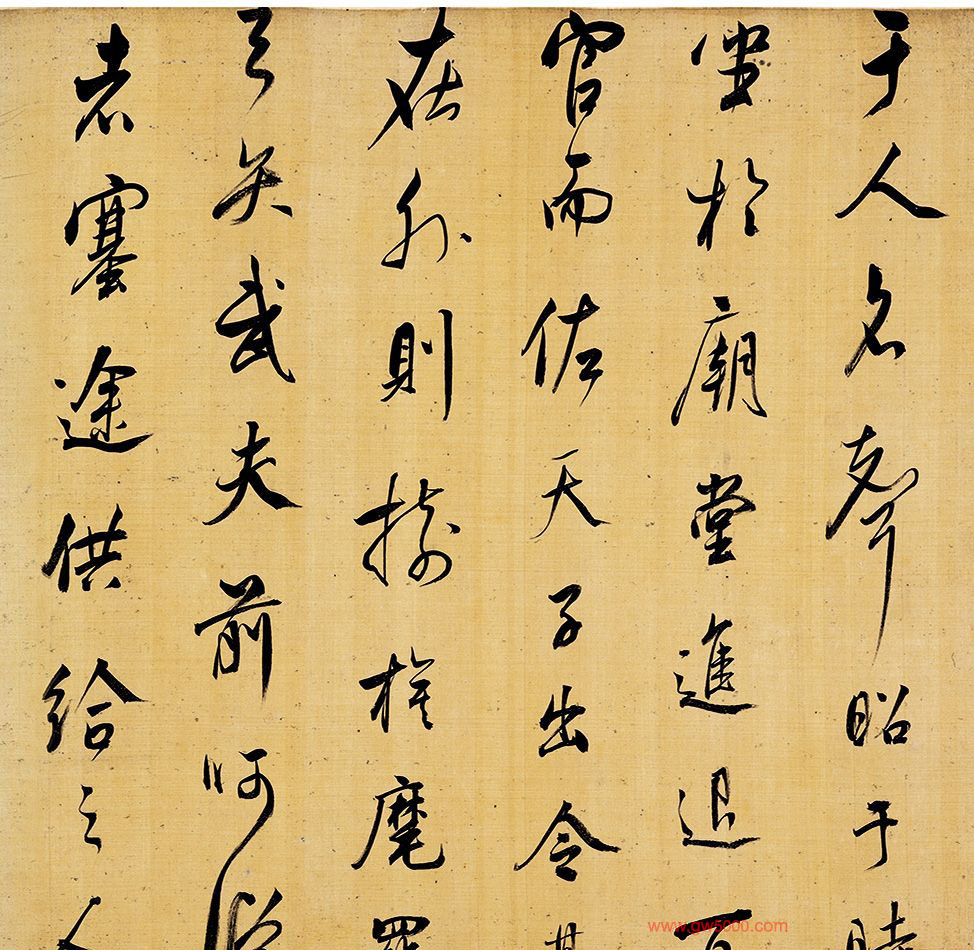 于人名聲昭于時
坐於廟堂進退百
官而佐天子出令其
在外則樹旗麾羅
弓矢武夫前呵從
者塞途供給之人
www.gw5000.com